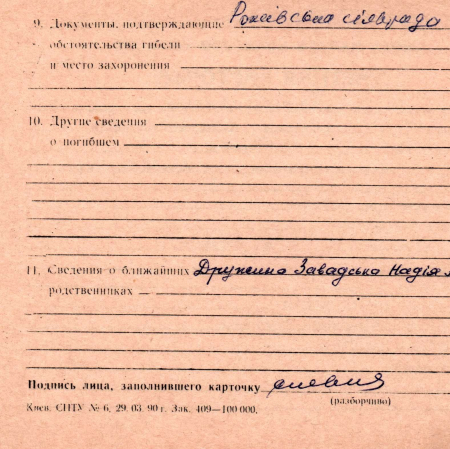 9. Документы, подтверждающие сільрада
обстоятельства гибели
и место захоронения
10. Другие сведения
о погибшем
11. Сведения о ближайших Дружина Завадська Надія
родственниках
Подпись лица, заполнившего карточку
(разборчиво)
Киев. СПТУ № 6, 29. 03. 90 г. Зак. 409—100 000.